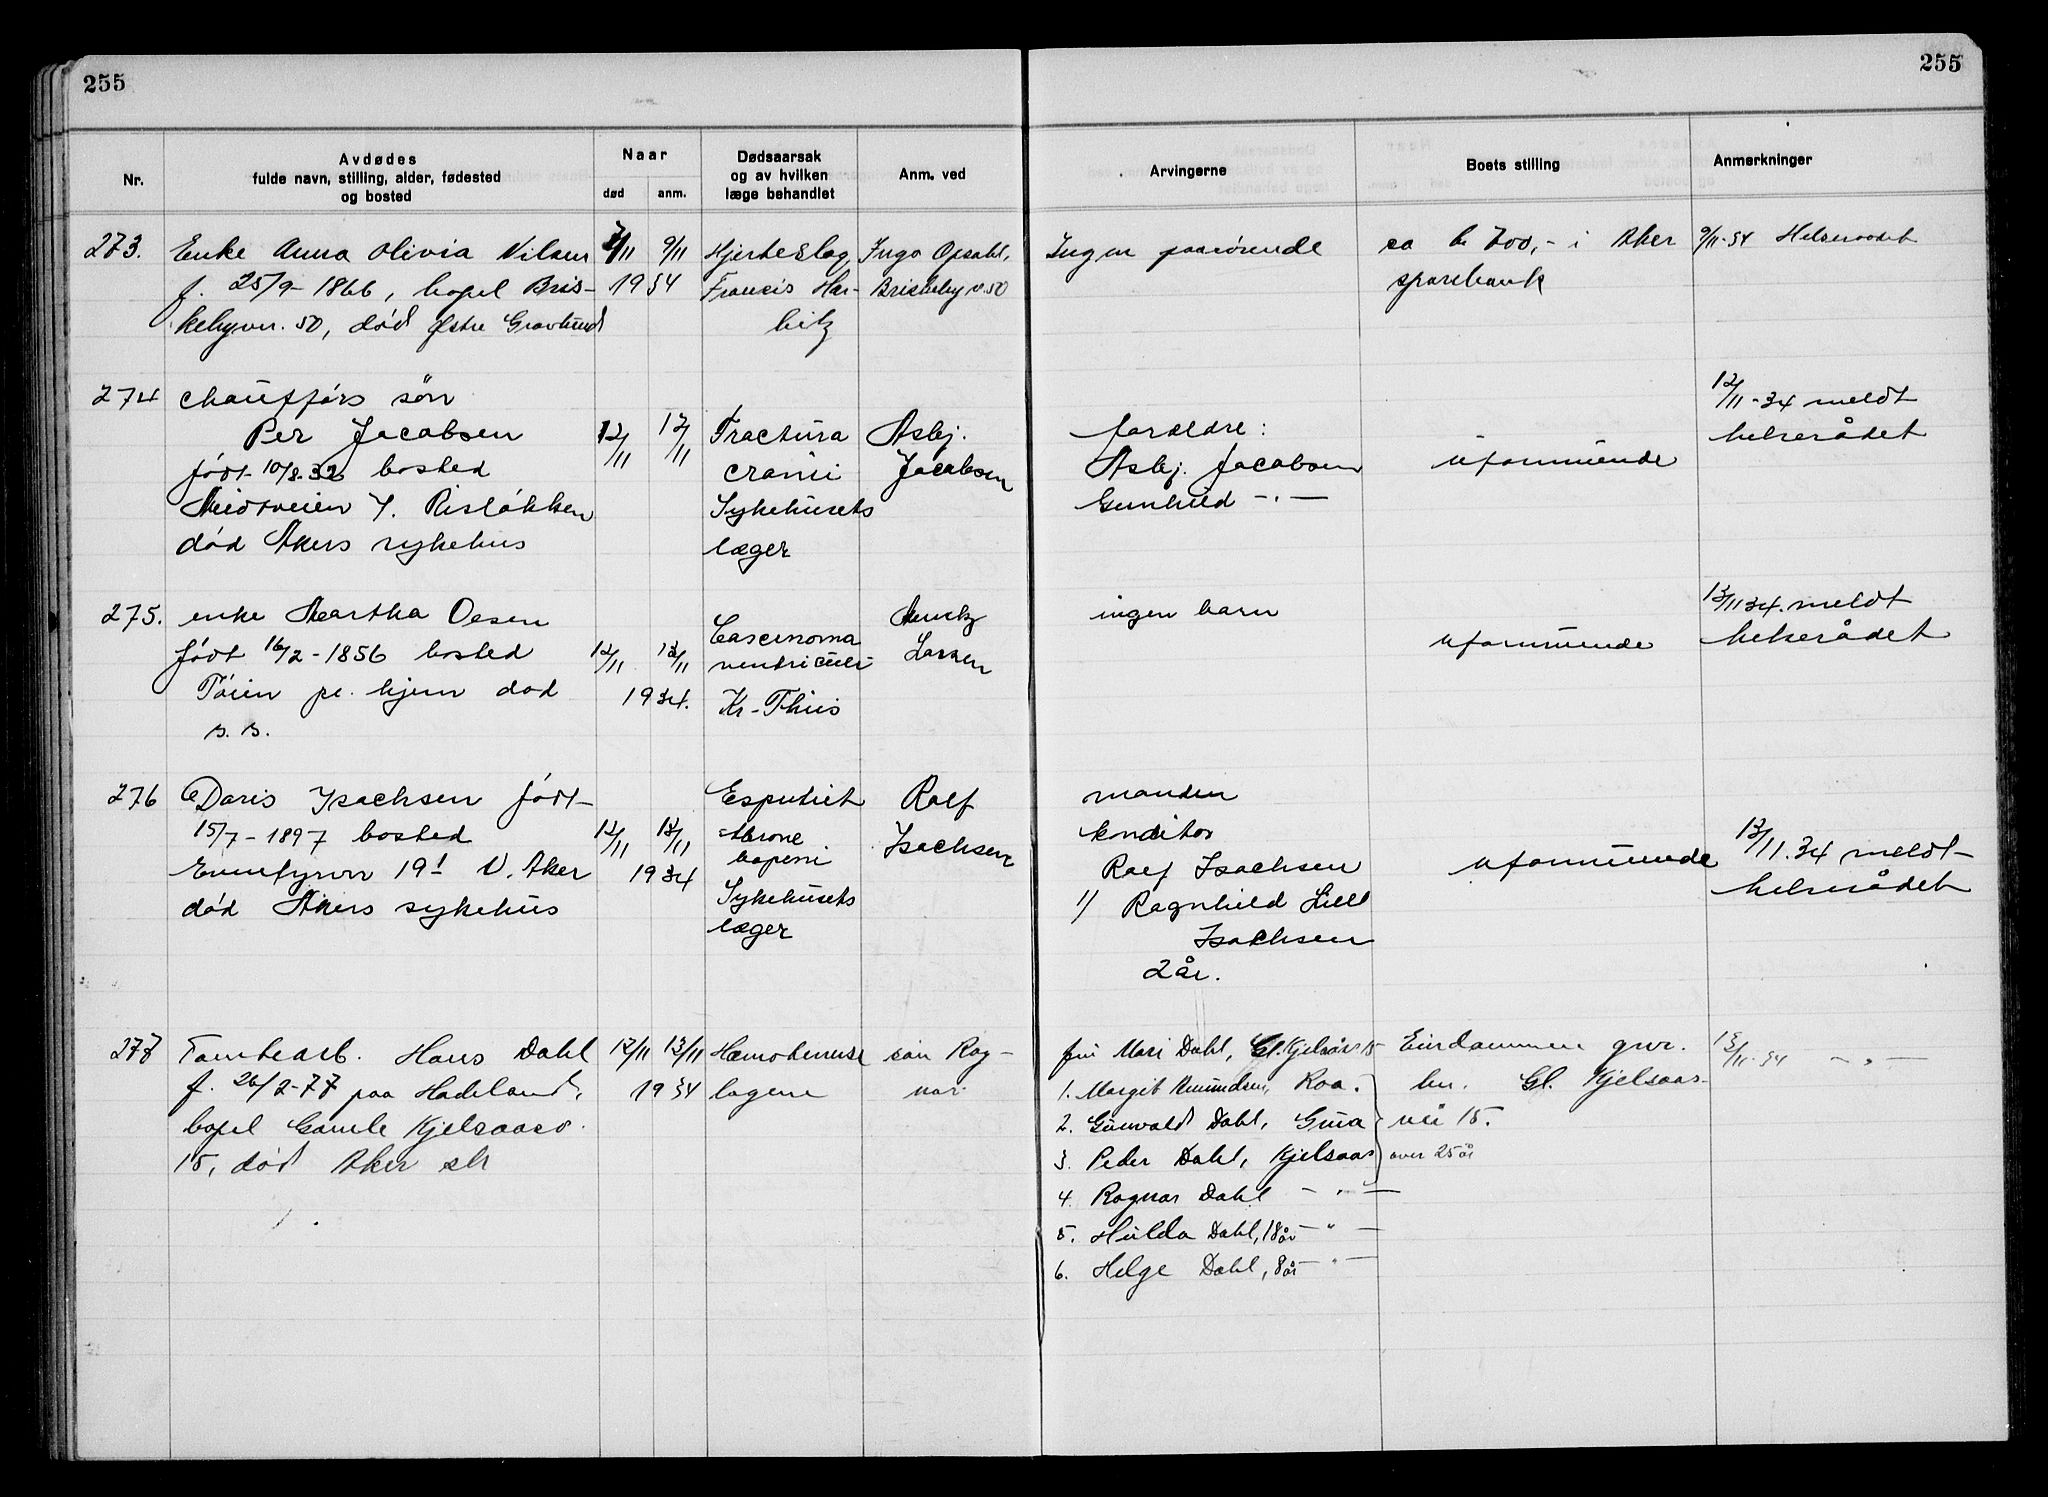 255
255
Nr.
Avdødes
fulde navn, stilling, alder, fødested
og bosted
Naar
død
anm.
Dødsaarsak
og av hvilken
læge behandlet
Anm. ved
Arvingerne
Boets stilling
Anmerkninger
273.
Enke Anna Olivia Nilsen
f. 25/9-1866, bopel Bris-
kebyvn. 50, død Østre Gravlund
7/11 9/11
1934
Hjerteslag
Francis Har-
bitz
Inga Opsahl,
Briskeby v. 50
Ingen paarørende
ca kr 700,- i Aker
sparebank
9/11-34 Helseraadet
274
chaufførs søn
Per Jacobsen
født 10/8-32 bosted
Risløkken
død Akers sykehus
12/11
12/11
Fractura
cranii
Sykehusets
læger
Asbj.
Jacobsen
foreldre:
Asbj. Jacobsen
Gunhild -"-
uformuende
12/11-34 meldt
helserådet
275.
enke Martha Olsen
født 16/2-1856 bosted
Tøien pl. hjem død
s. s.
12/11
13/11
1934.
Carcinoma
ventriculi
Kr. Thiis
Larsen
ingen barn
uformuende
13/11 34. meldt
helserådet
276
Doris Isachsen født
15/7-1897 bosted
Eventyrvn 19 I V. Aker
død Akers sykehus
12/11
13/11
1934
Sykehusets
læger
Rolf
Isachsen
manden
konditor
Rolf Isachsen
1) Ragnhild Lill
Isachsen
2 år.
uformuende
13/11.34 meldt
helserådet
277
Tomtearb. Hans Dahl
f. 26/2-77 paa Hadeland,
bopel Gamle Kjelsaasv.
15, død Aker sh
12/11 13/11
1934
søn Rag-
nar
fru Mari Dahl, Gl. Kjelsåsv 15
1. Margit Amundsen, Roa.
2. Gunvald Dahl, Grua
3. Peder Dahl, Kjelsaas
4. Ragnar Dahl - " -
5. Hulda Dahl, 18 år - " -
6. Helge Dahl, 8 år - " -
over 25 år
Eiendommen gnr.
bn. Gl. Kjelsaas-
vei 15.
13/11-34 - " -